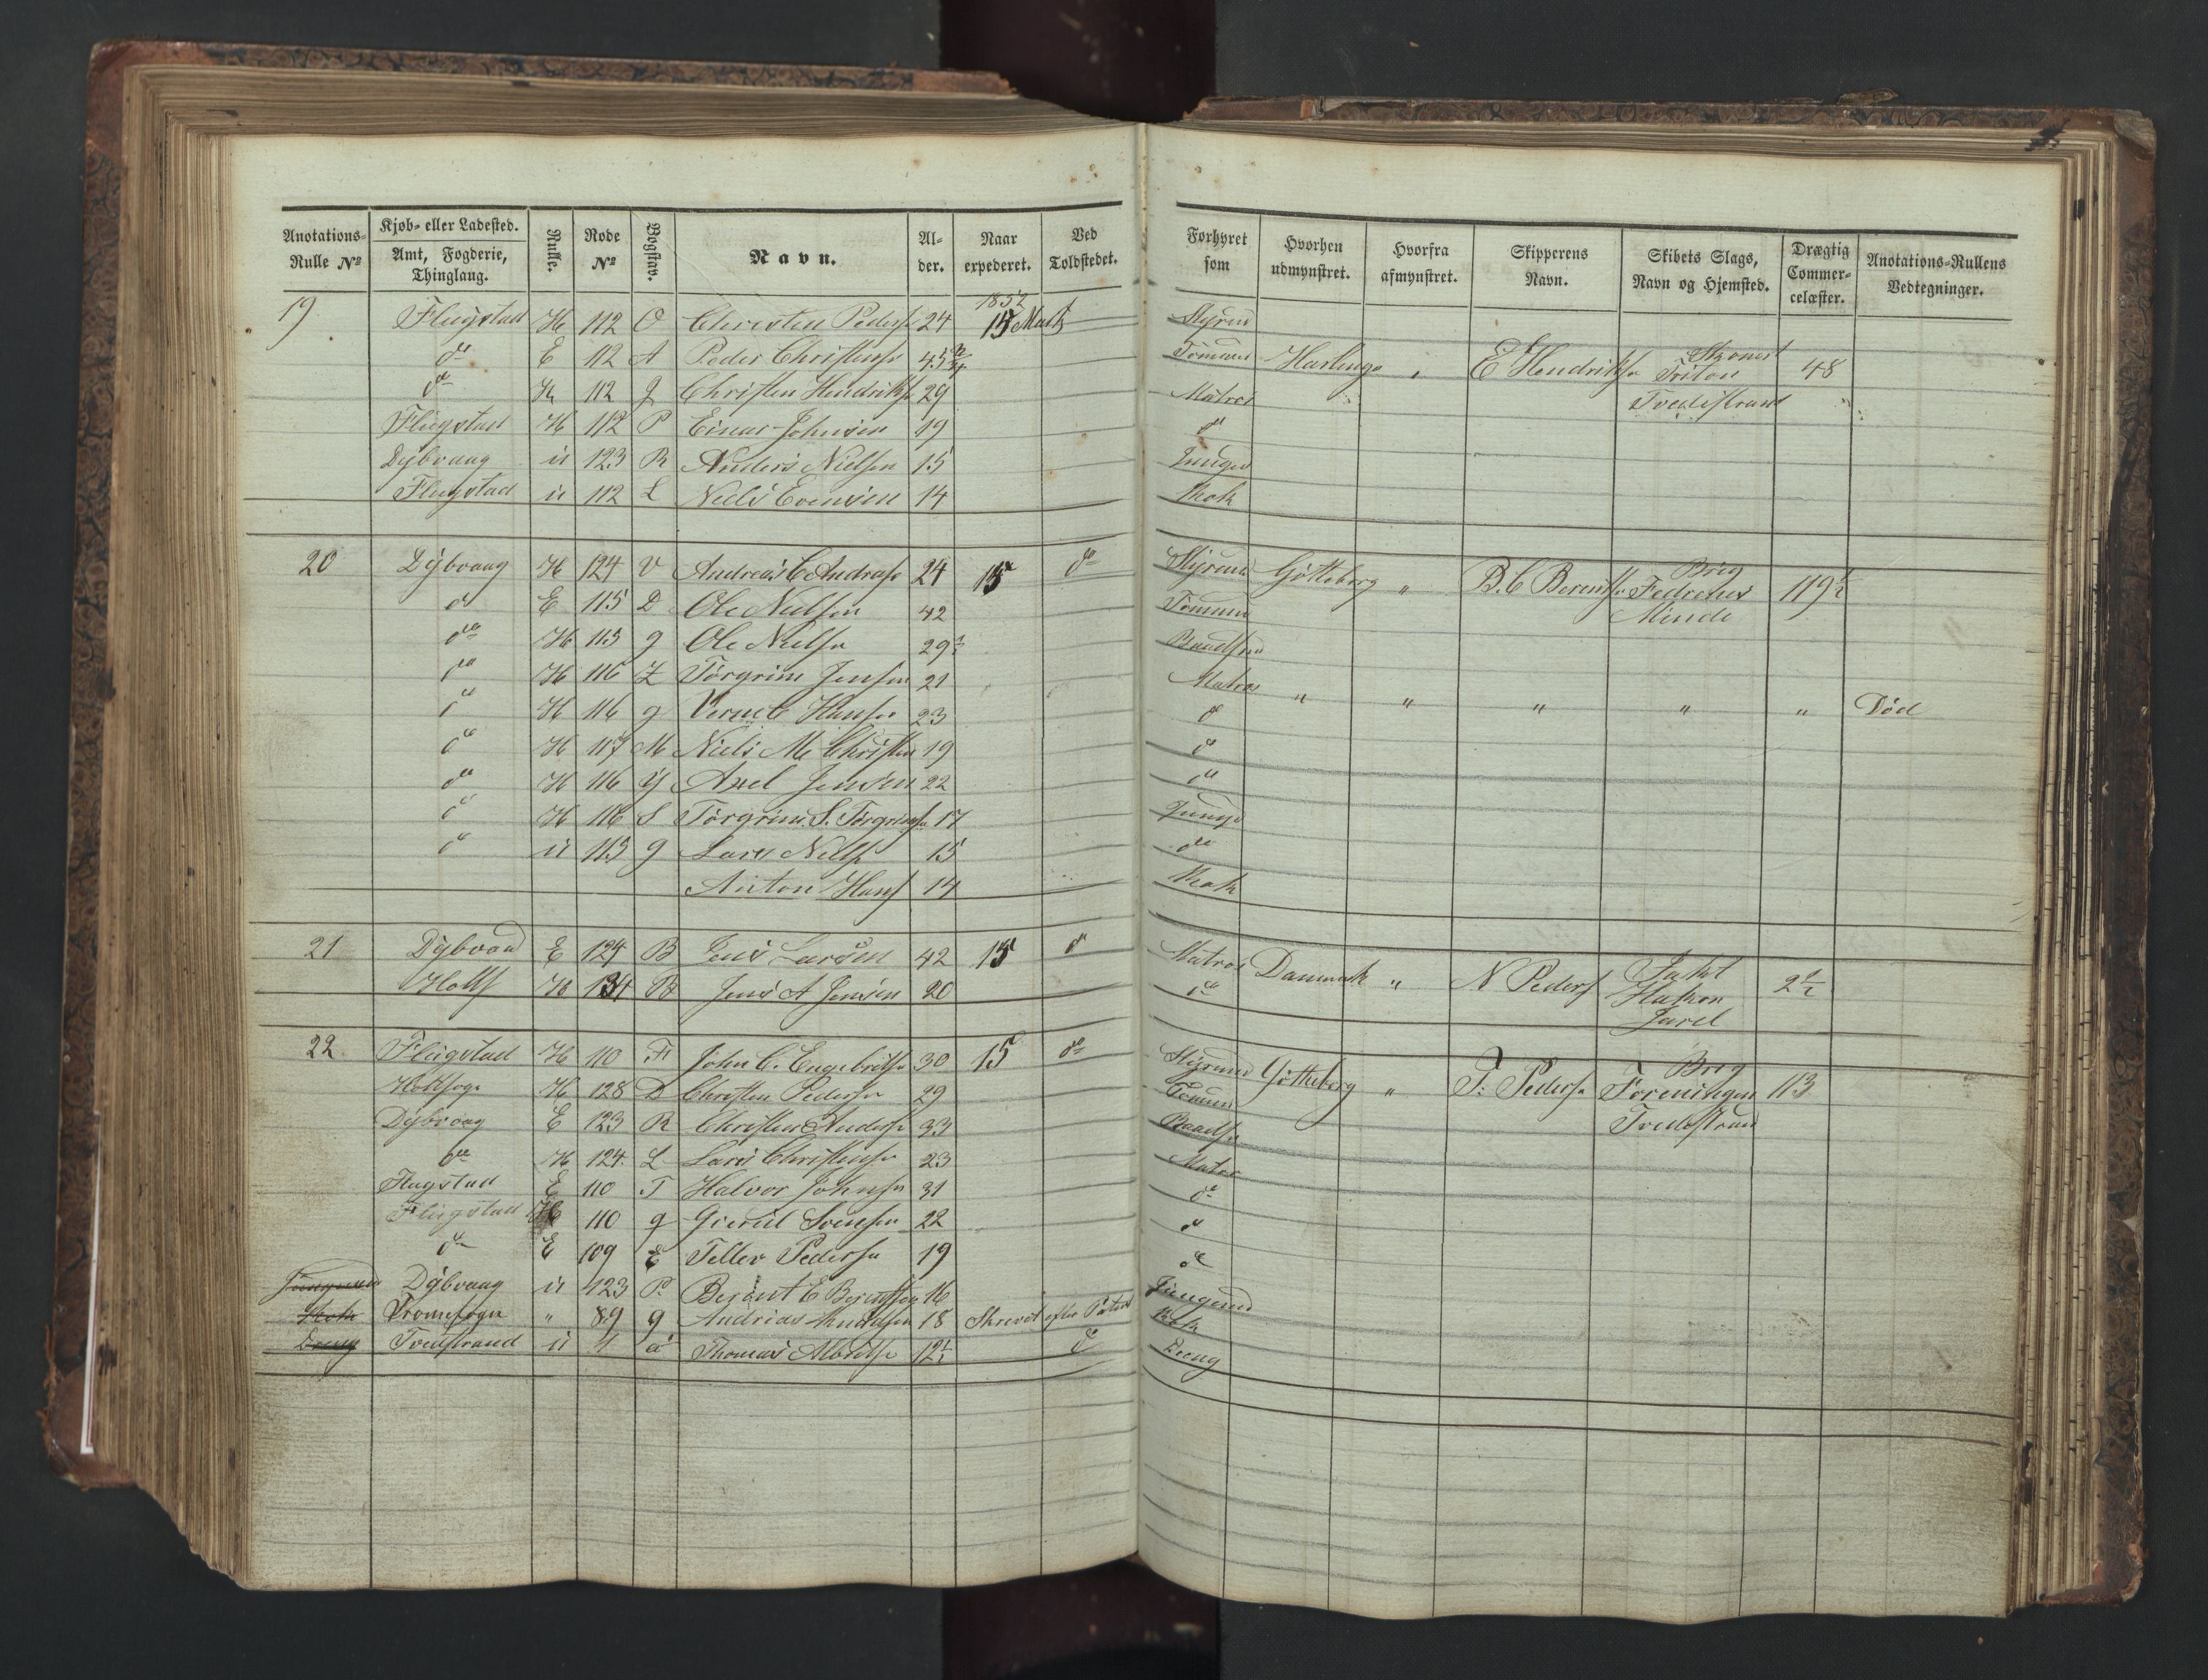 Anotations-Rulle № | Kjøb- eller Ladested. Amt, Fogderie, Thinglang. | Rulle. | Rode № | Bogstav. | Navn. | Alder. | Naar expederet. | Ved Toldstedet.
19 Flugstad H 112 O Christen Peders 24 1852 15 Marts
do E 112 A Peder Christens 43
do H 112 Christen Hendriks 29
Flugstad H 112 P Einar Johnsen 19
Dybvaag u 123 R Anders Nielsen 15
Flugstad u 112 L Niels Evensen 14
20 Dybvaag H 124 V Andreas C Andreas 24 15 do
do E 115 D Ole Nielsen 42
do H 113 g Ole Nielsn 29½
do H 116 Z Törgrim Jensen 21
do H 116 g Hansn 23
do H 117 M Niels M Christen 19
do H 116 Axel Jensen 22
do H 116 S Törgrim S. Törgrims 17
do u 113 g Lars Niels 15
Anton Hans 14
21 Dybvaa E 124 B Jens Larsen 42 15 do
Holts H 134 Jens A Jensen 20
22 Flugstad H 110 F John C. Engebrets 30 15 do
Holtsogn H 128 D Christen Pedersn 29
Dybvaag E 123 R Christen Anders 33
do H 124 L Lars Christens 23
Flugstad E 110 T Halvor Johnsn 31
Flugstad H 110 g Svensen 22
do E 109 E Teller Pedersn 19
Jungmand Dybvaag u 123 P. Berent E Berentsen 16
Kok Tromøsogn " 89 g Andreas Knudsen 18 Skrevet efter
Dreng Tvedstrand u 4 a Thomas Albrets 12½ do
Forhyret som | Hvorhen udmynstret. | Hvorfra afmynstret. | Skipperens Navn. | Skibets Slags, Navn og Hjemsted. | Drægtig Commercelæster. | Anotations-Rullens Vedtegninger.
Styrm
Tömmer Harlinge " E Hendriks Triton 48
Matros Tvedestrand
do
Junge
Kok
Styrm Gøtteborg " B. C Berents Brig Fedrenes Minde 119½
Tömmer
Baadsm
Matros " " " " " Död
do
do
do
Junge
do
Kok
Matros Danmark " N Peders Jakt Hakon Jarl 2½
do
Styrm Gøtteborg " T. Peders Brig Foreningen Tvedestrand 113
Tömm
Baads
Matros
do
do
do
Jungmd
Kok
Dreng